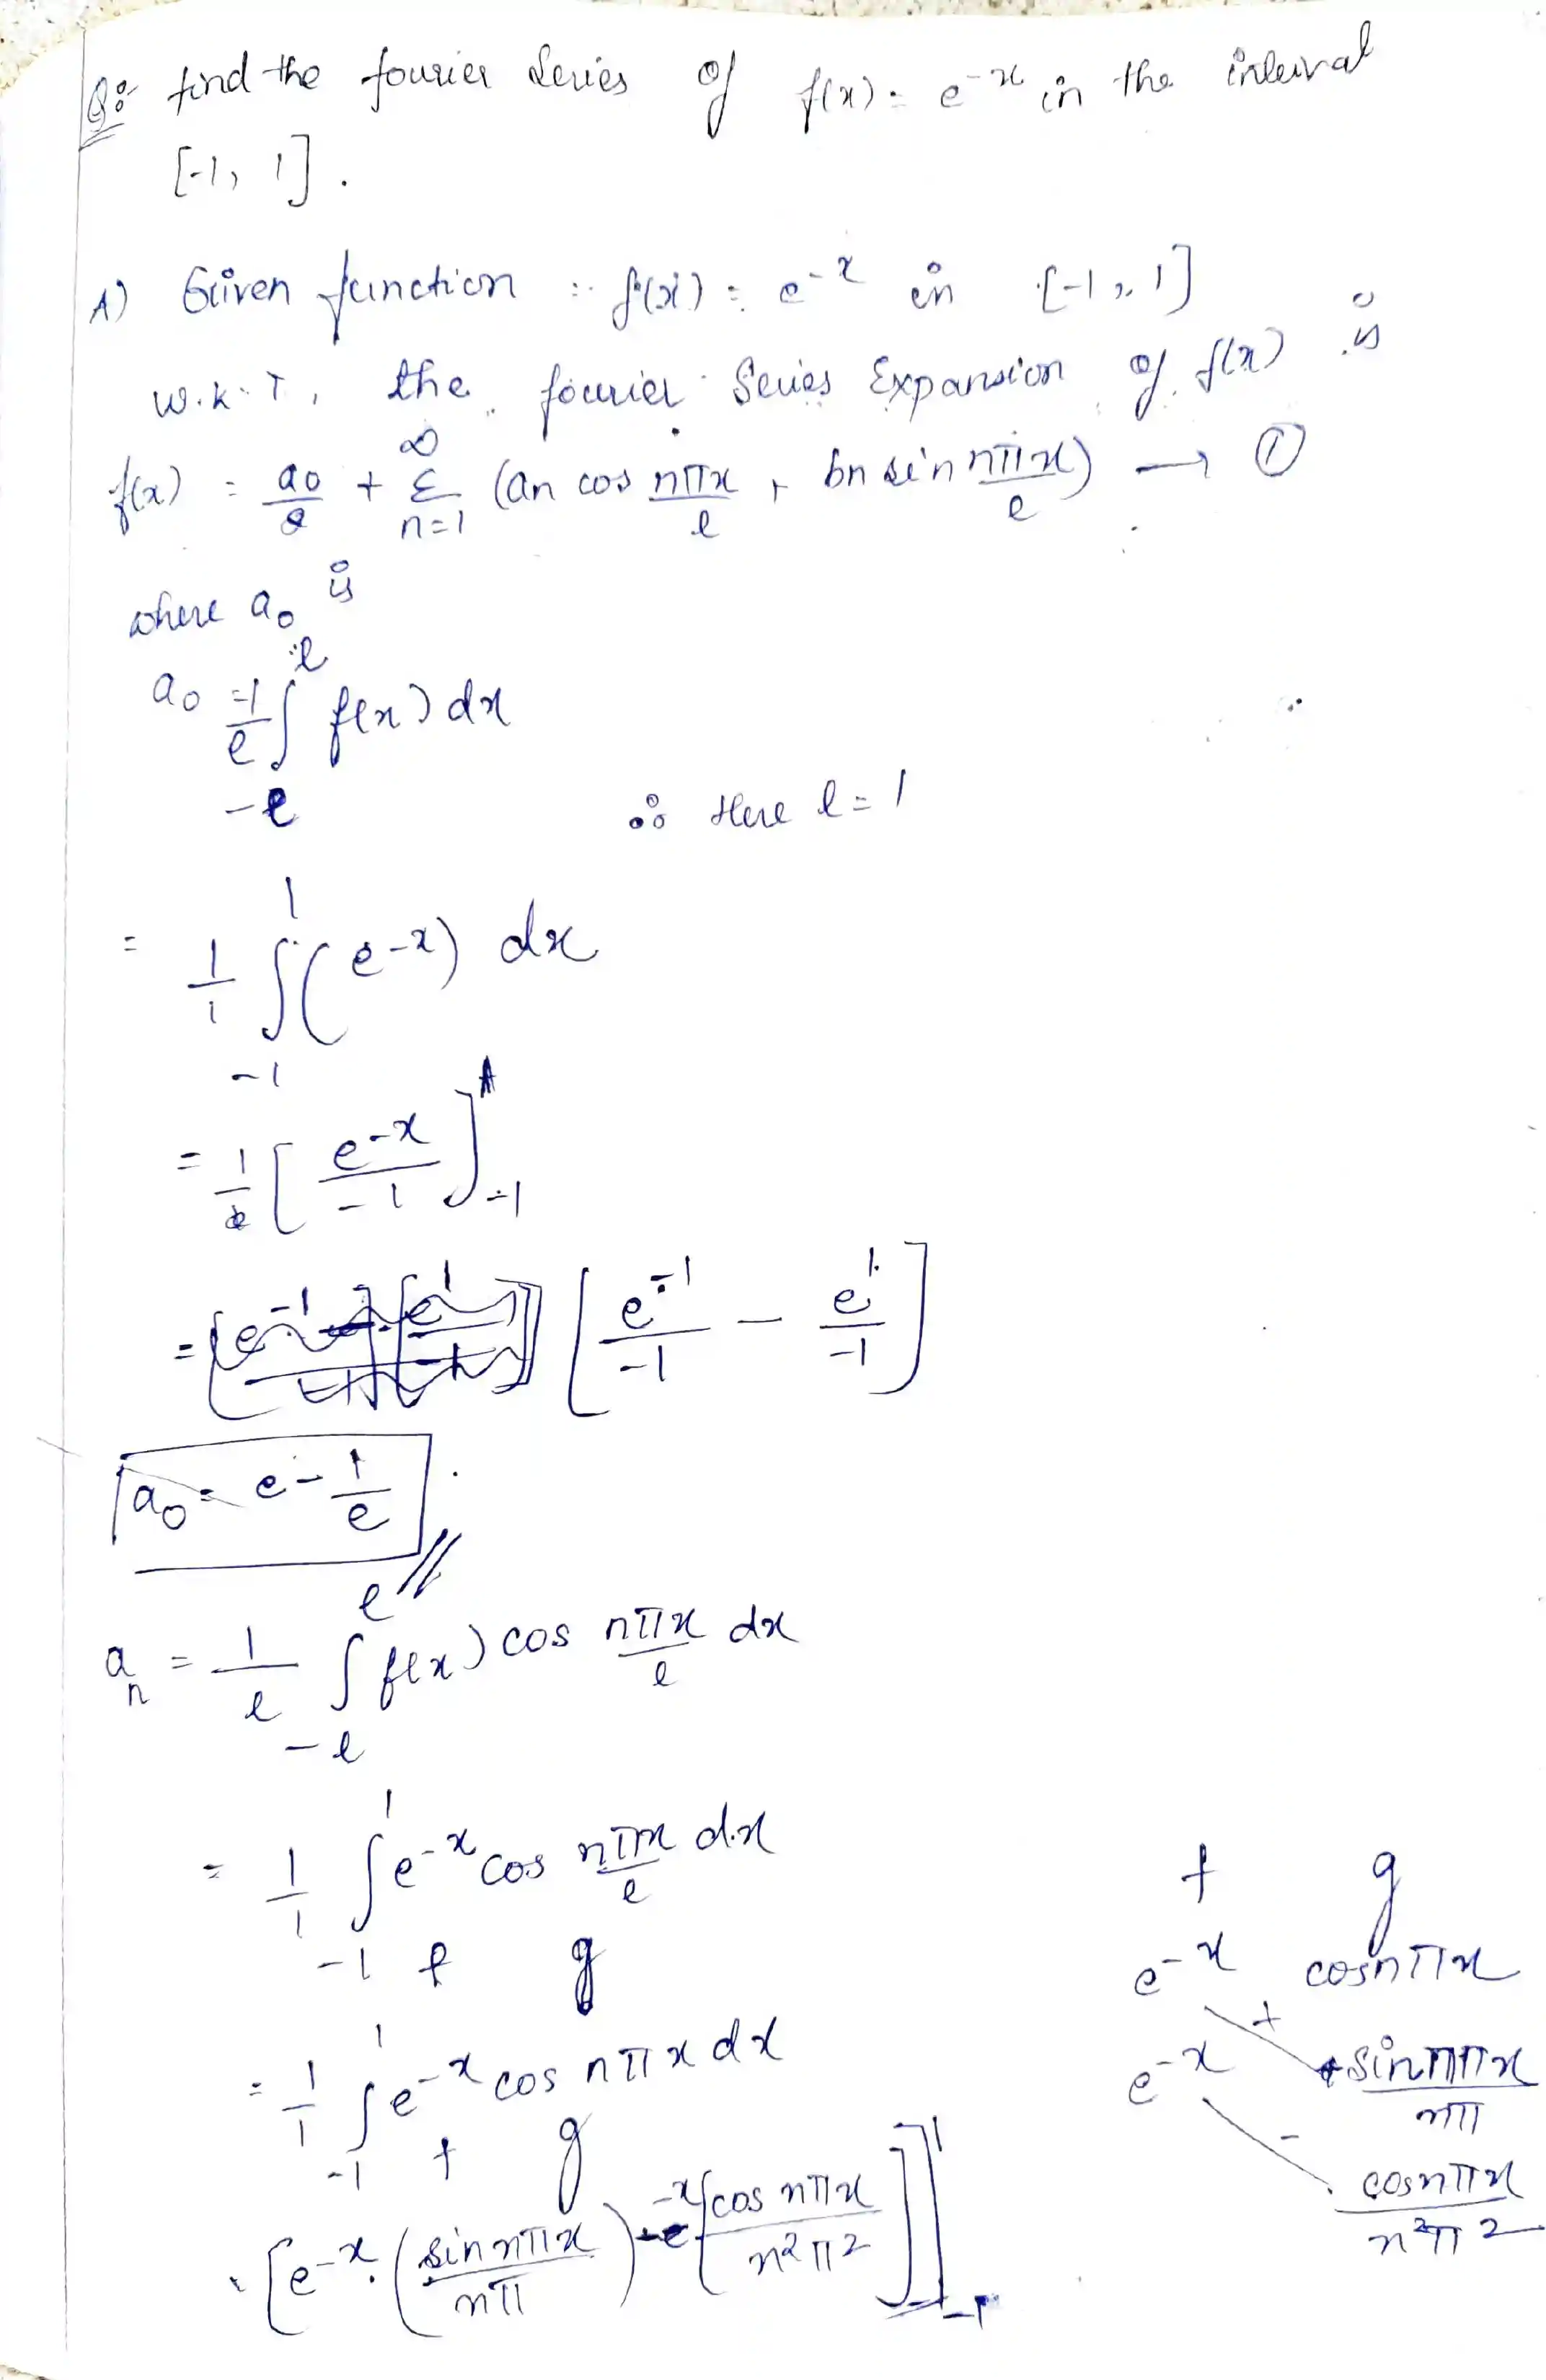 Q:- find the fourier Series of f(x) = e^-x in the interval
[-1, 1].
A) Given function :- f(x) = e^-x in [-1, 1]
W.K.T, the fourier Series Expansion of f(x) is
f(x) = a0/2 + Σ n=1 ∞ (an cos nπx/l + bn sin nπx/l) → ①
where a0 is
a0 = 1/l ∫ -l l f(x) dx
∴ Here l = 1
= 1/1 ∫ -1 1 (e^-x) dx
= 1/1 [e^-x/-1] -1 1
= [e^-1/-1 - e^1/-1]
a0 = e - 1/e //
an = 1/l ∫ -l l f(x) cos nπx/l dx
= 1/1 ∫ -1 1 e^-x cos nπx/l dx
f g
= 1/1 ∫ -1 1 e^-x cos nπx dx
f g
[e^-x . (sin nπx/nπ) - e^-x [cos nπx/n²π²]] -1 1
f g
e^-x cosnπx
+
e^-x +sin nπx/nπ
-
cosnπx/n²π²